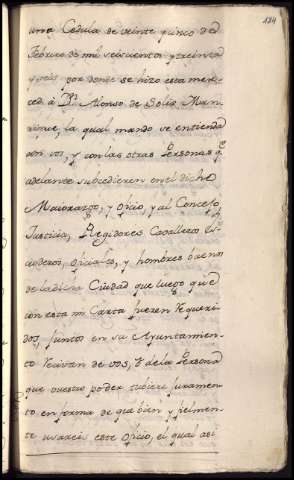 134
una Cedula de veinte y cinco de
Febrero de mil seiscientos y treinta
y seis por donde se hizo esta mer-
ced â Dn. Alonso de Solis Man-
rique, la qual mando se entienda
con vos, y con las otras Personas qe.
adelante subcedieren en el dicho
Maiorazgo, y Oficio, y al Concejo,
Justicia, Regidores Cavalleros Es-
cuderos, oficiales, y hombres buenos
de la dicha Ciudad que luego que
con esta mi Carta fueren requeri-
dos, juntos en su Ayuntamien-
to recivan de vos, ô de la Persona
que vuestro poder tubiere juramen-
to en forma de que bien y fielmen-
te usareis este Oficio, el qual asi